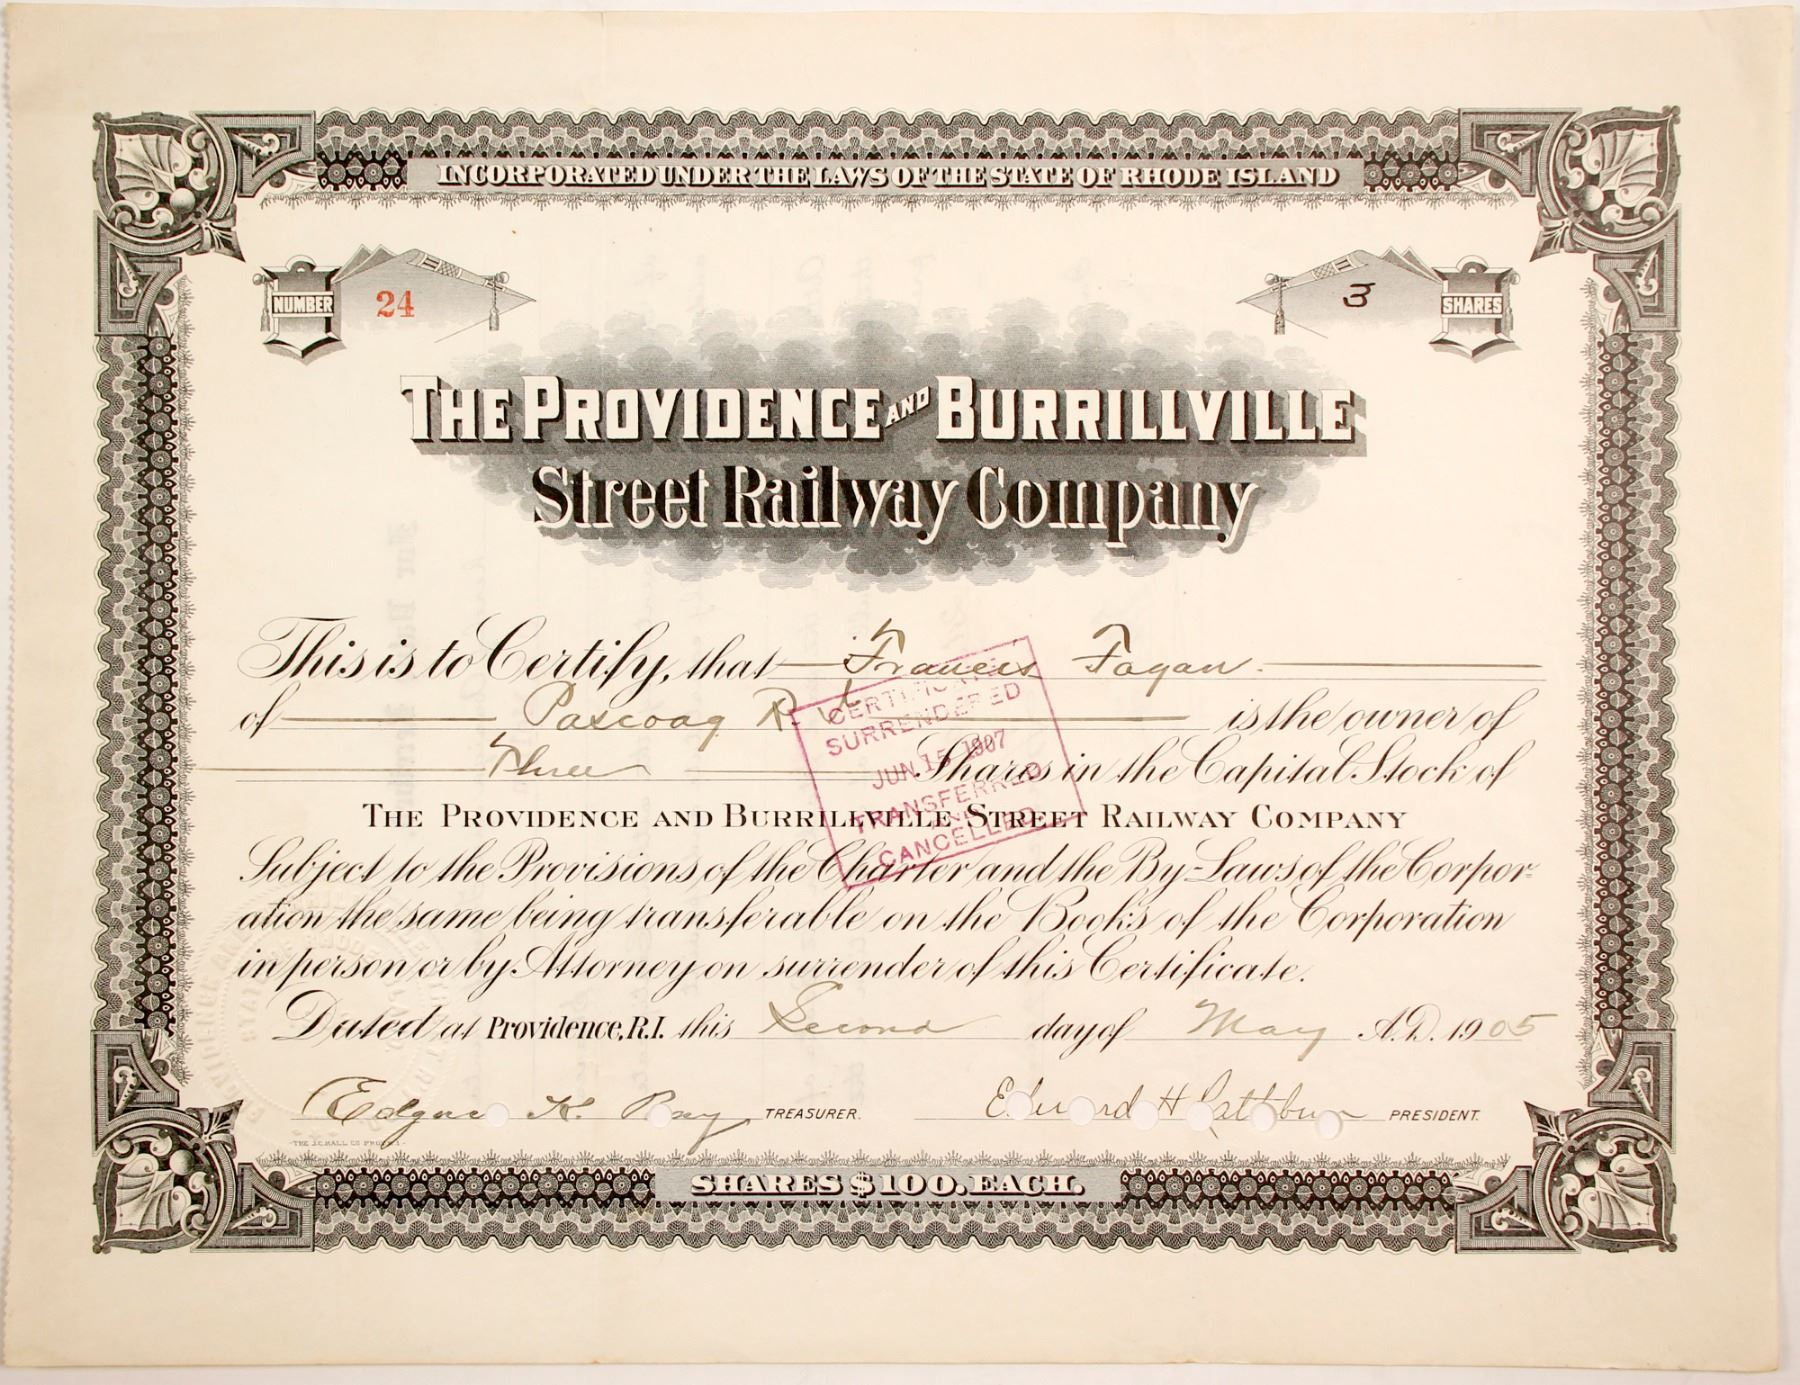 INCORPORATED UNDER THE LAWS OF THE STATE OF RHODE ISLAND
NUMBER 24
3 SHARES
THE PROVIDENCE AND BURRILLVILLE
Street Railway Company
This is to Certify, that Francis Fagan.
of Pascoag R. I. is the owner of
Three Shares in the Capital Stock of
THE PROVIDENCE AND BURRILLVILLE STREET RAILWAY COMPANY
Subject to the Provisions of the Charter and the By-Laws of the Corpor-
ation the same being transferable on the Books of the Corporation
in person or by Attorney on surrender of this Certificate.
Dated at Providence, R.I. this Second day of May A.D. 1905
Edgar K. Ray TREASURER.
Edward H Rathbun PRESIDENT.
SHARES $100. EACH.
CERTIFICATE
SURRENDERED
JUN 15 1907
TRANSFERRED
AND
CANCELLED
THE J.C. HALL CO